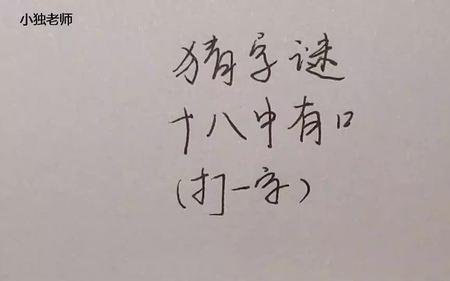 小独老师
猜字谜
十八中有口
(打一字)